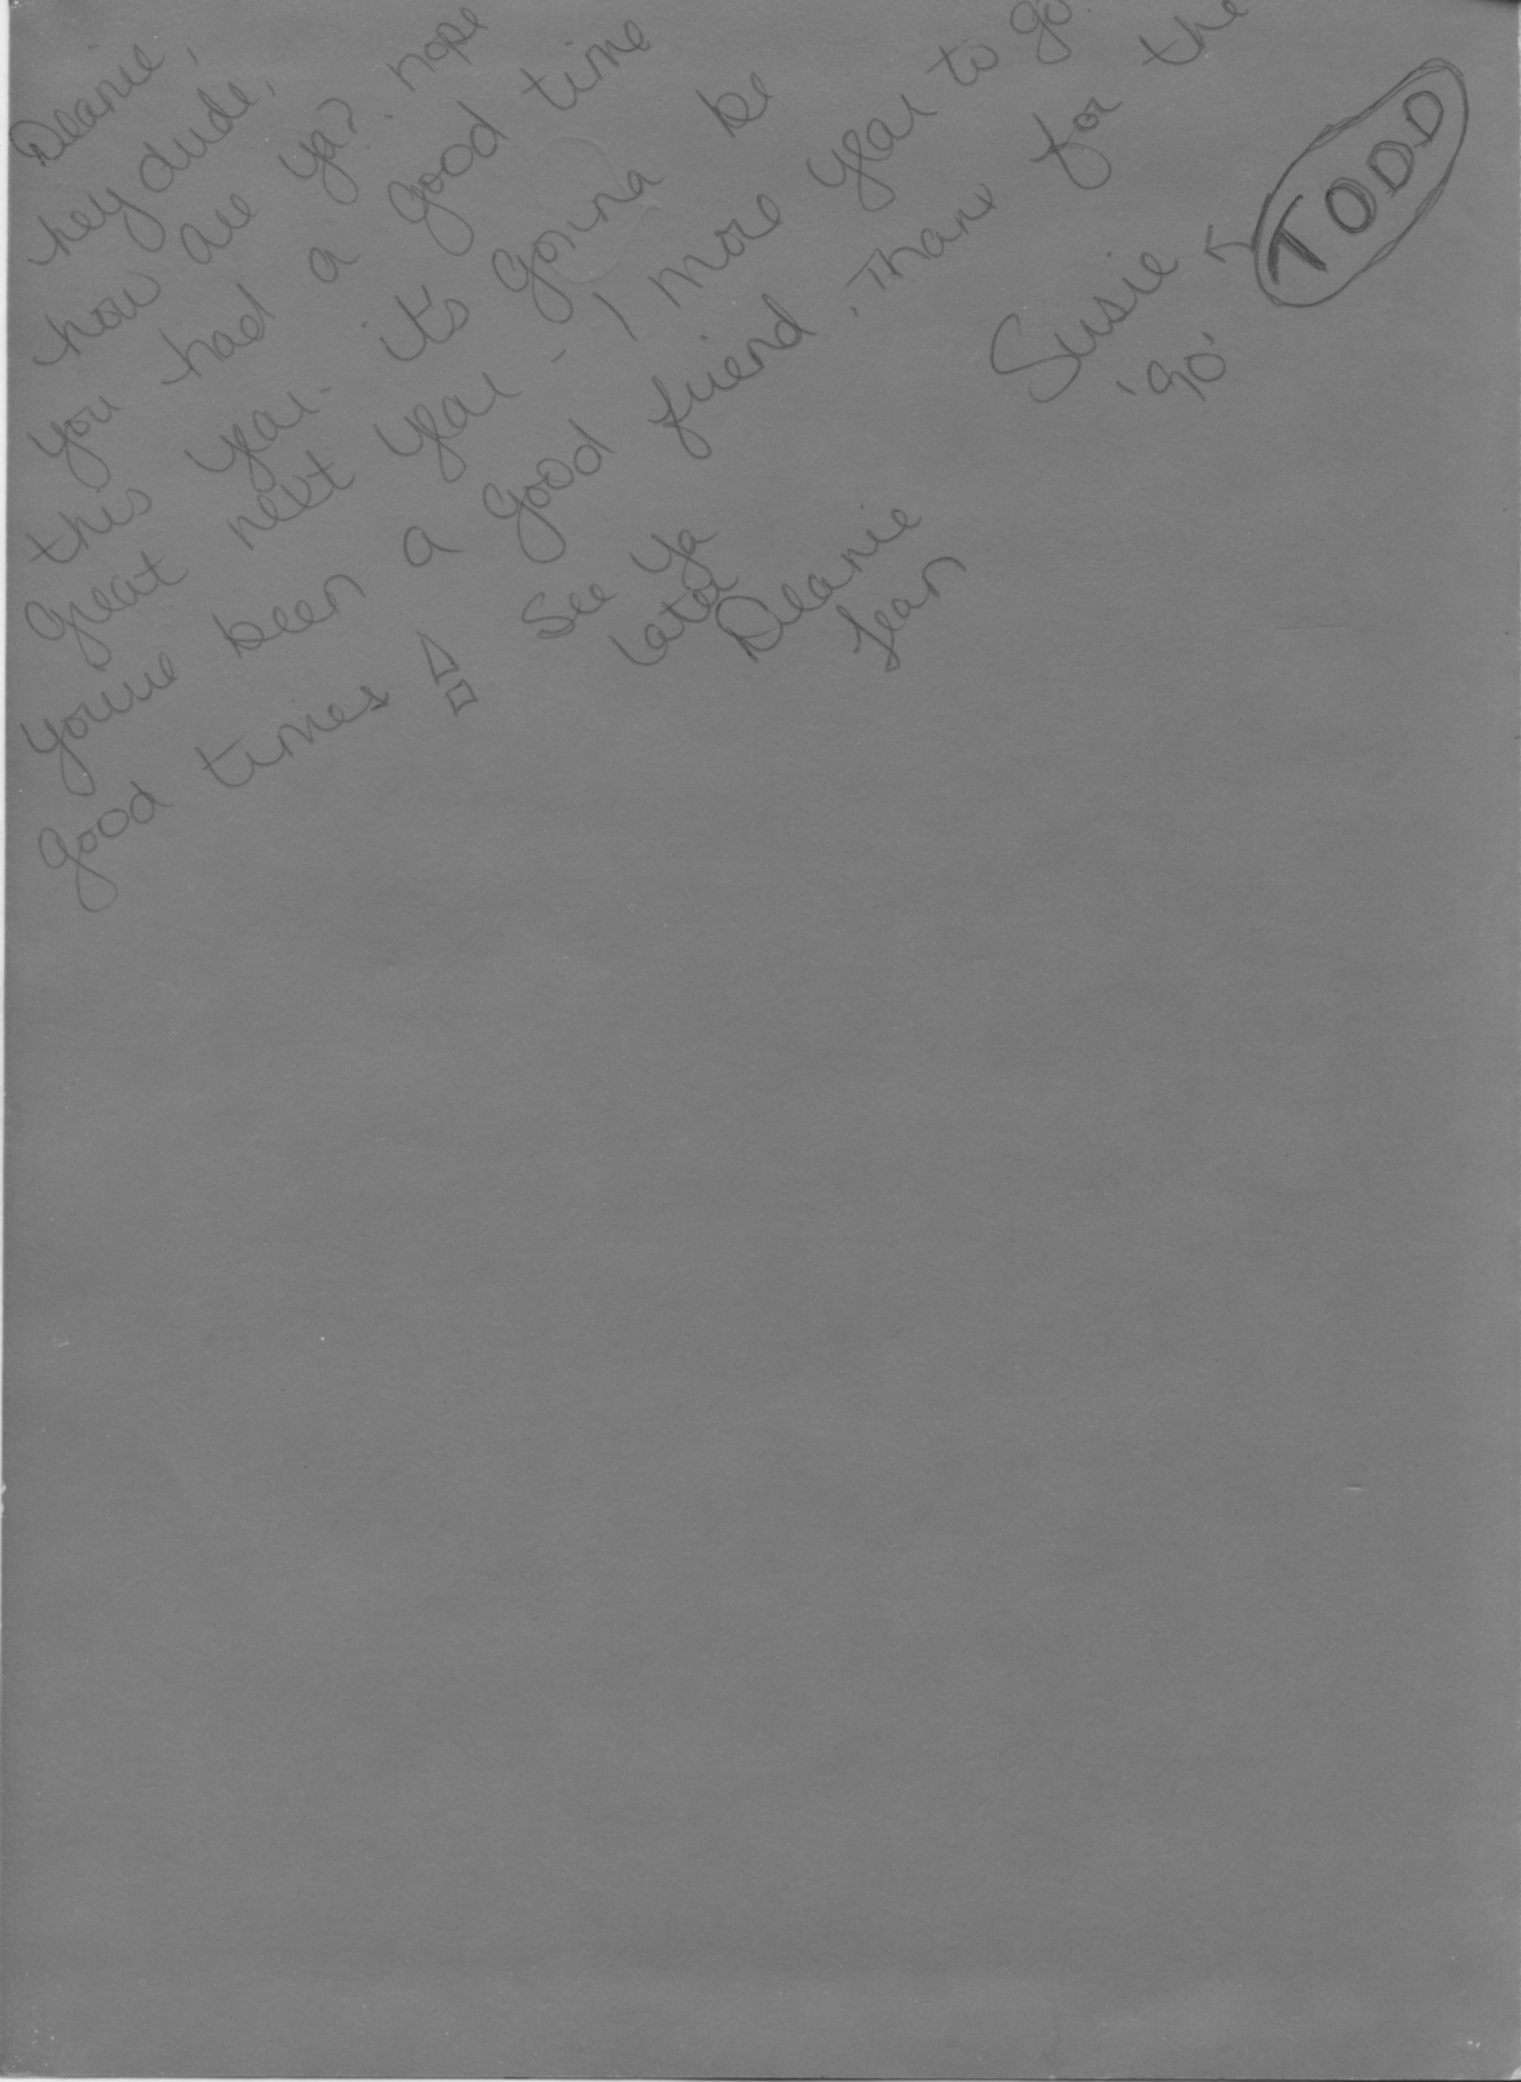 Deanie,
hey dude,
how are ya? hope
you had a good time
this year - it's gonna be
great next year - 1 more year to go
youve been a good friend. Thanx for the
good times! See ya
later
Deanie
Jean
Susie ← TODD
'90'